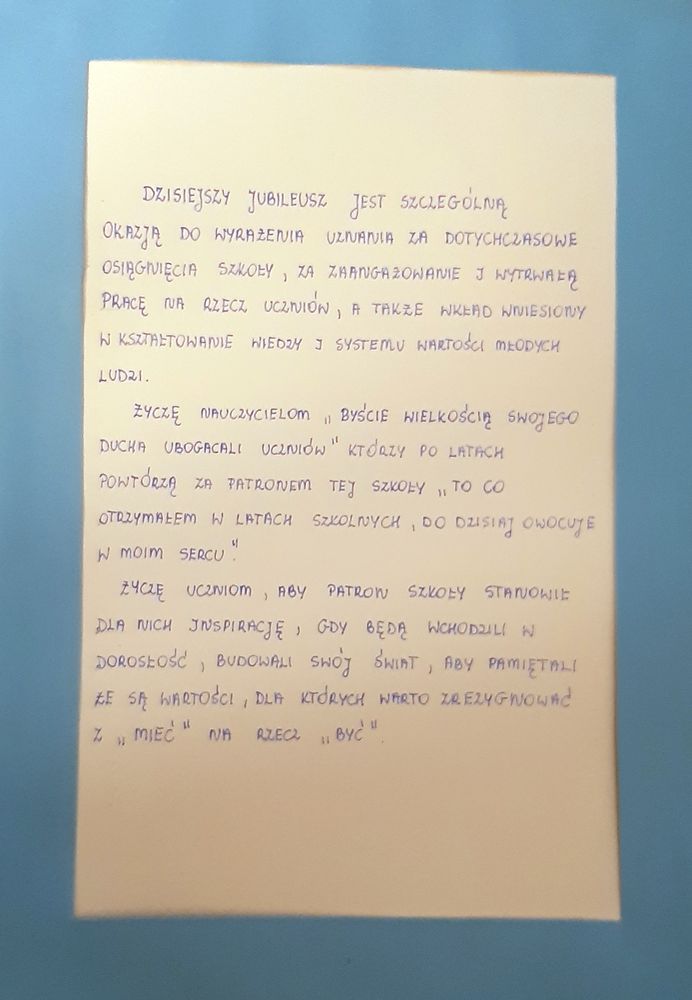 DZISIEJSZY JUBILEUSZ JEST SZCZEGÓLNĄ
OKAZJĄ DO WYRAŻENIA UZNANIA ZA DOTYCHCZASOWE
OSIĄGNIĘCIA SZKOŁY, ZA ZAANGAŻOWANIE I WYTRWAŁĄ
PRACĘ NA RZECZ UCZNIÓW, A TAKŻE WKŁAD WNIESIONY
W KSZTAŁTOWANIE WIEDZY I SYSTEMU WARTOŚCI MŁODYCH
LUDZI.
ŻYCZĘ NAUCZYCIELOM „BYŚCIE WIELKOŚCIĄ SWOJEGO
DUCHA UBOGACALI UCZNIÓW" KTÓRZY PO LATACH
POWTÓRZĄ ZA PATRONEM TEJ SZKOŁY „TO CO
OTRZYMAŁEM W LATACH SZKOLNYCH, DO DZISIAJ OWOCUJE
W MOIM SERCU".
ŻYCZĘ UCZNIOM, ABY PATRON SZKOŁY STANOWIŁ
DLA NICH INSPIRACJĘ, GDY BĘDĄ WCHODZILI W
DOROSŁOŚĆ, BUDOWALI SWÓJ ŚWIAT, ABY PAMIĘTALI
ŻE SĄ WARTOŚCI, DLA KTÓRYCH WARTO ZREZYGNOWAĆ
Z „MIEĆ" NA RZECZ „BYĆ".